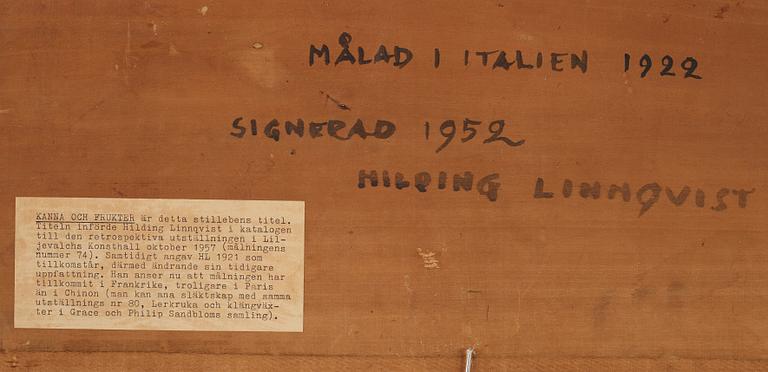 MÅLAD I ITALIEN 1922
SIGNERAD 1952
HILDING LINNQVIST
KANNA OCH FRUKTER är detta stillebens titel.
Titeln införde Hilding Linnqvist i katalogen
till den retrospektiva utställningen i Lil-
jevalchs Konsthall oktober 1957 (målningens
nummer 74). Samtidigt angav HL 1921 som
tillkomstår, därmed ändrande sin tidigare
uppfattning. Han anser nu att målningen har
tillkommit i Frankrike, troligare i Paris
än i Chinon (man kan ana släktskap med samma
utställnings nr 80, Lerkruka och klängväx-
ter i Grace och Philip Sandbloms samling).